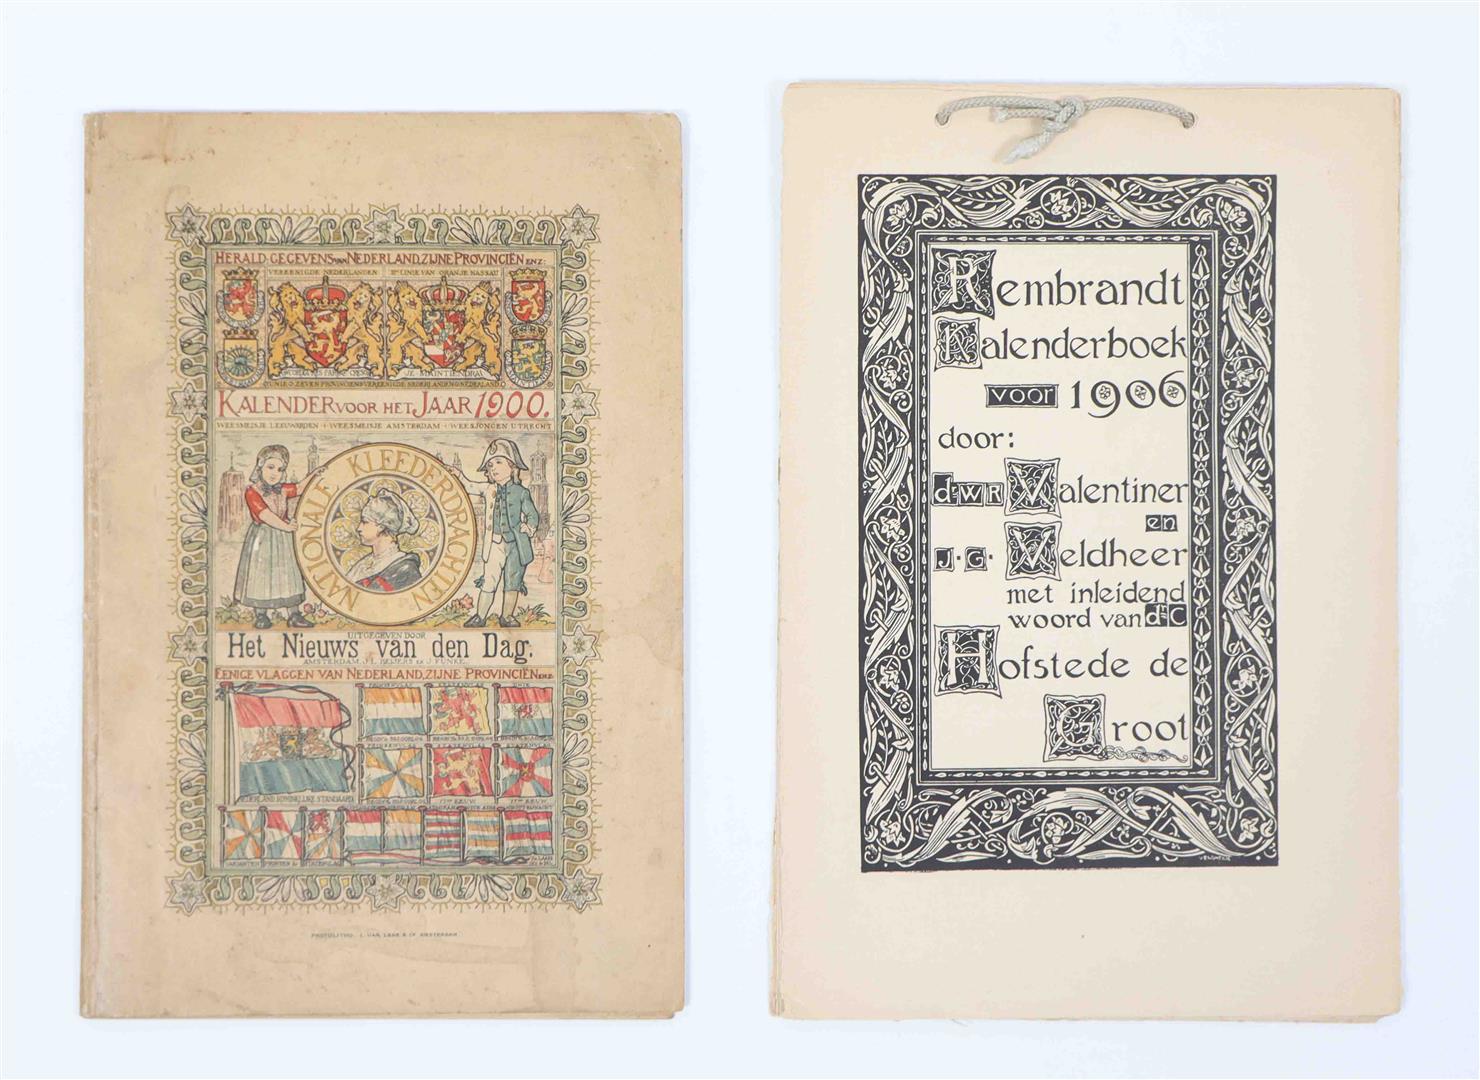 HERALD: GEGEVENS VAN NEDERLAND, ZIJNE PROVINCIËN ENZ:
VEREENIGDE NEDERLANDEN
IIE LINIE VAN ORANJE NASSAU
JE MAINTIENDRAI
KALENDER VOOR HET JAAR 1900.
WEESMEISJE LEEUWARDEN + WEESMEISJE AMSTERDAM + WEESJONGEN UTRECHT
NATIONALE KLEEDERDRACHTEN
UITGEGEVEN DOOR
Het Nieuws van den Dag.
AMSTERDAM. J. L. BEIJERS EN J FUNKE.
EENIGE VLAGGEN VAN NEDERLAND, ZIJNE PROVINCIËN ENZ.
PRINSENVLAG STATENVLAG
NEDERLAND KONINKLIJKE STANDAARD
PHOTOLITHO. L. VAN LEER & Co AMSTERDAM.
Rembrandt
Kalenderboek
voor 1906
door:
dr W R Valentiner
en
J. G. Veldheer
met inleidend
woord van dr C
Hofstede de
Groot
VELDHEER